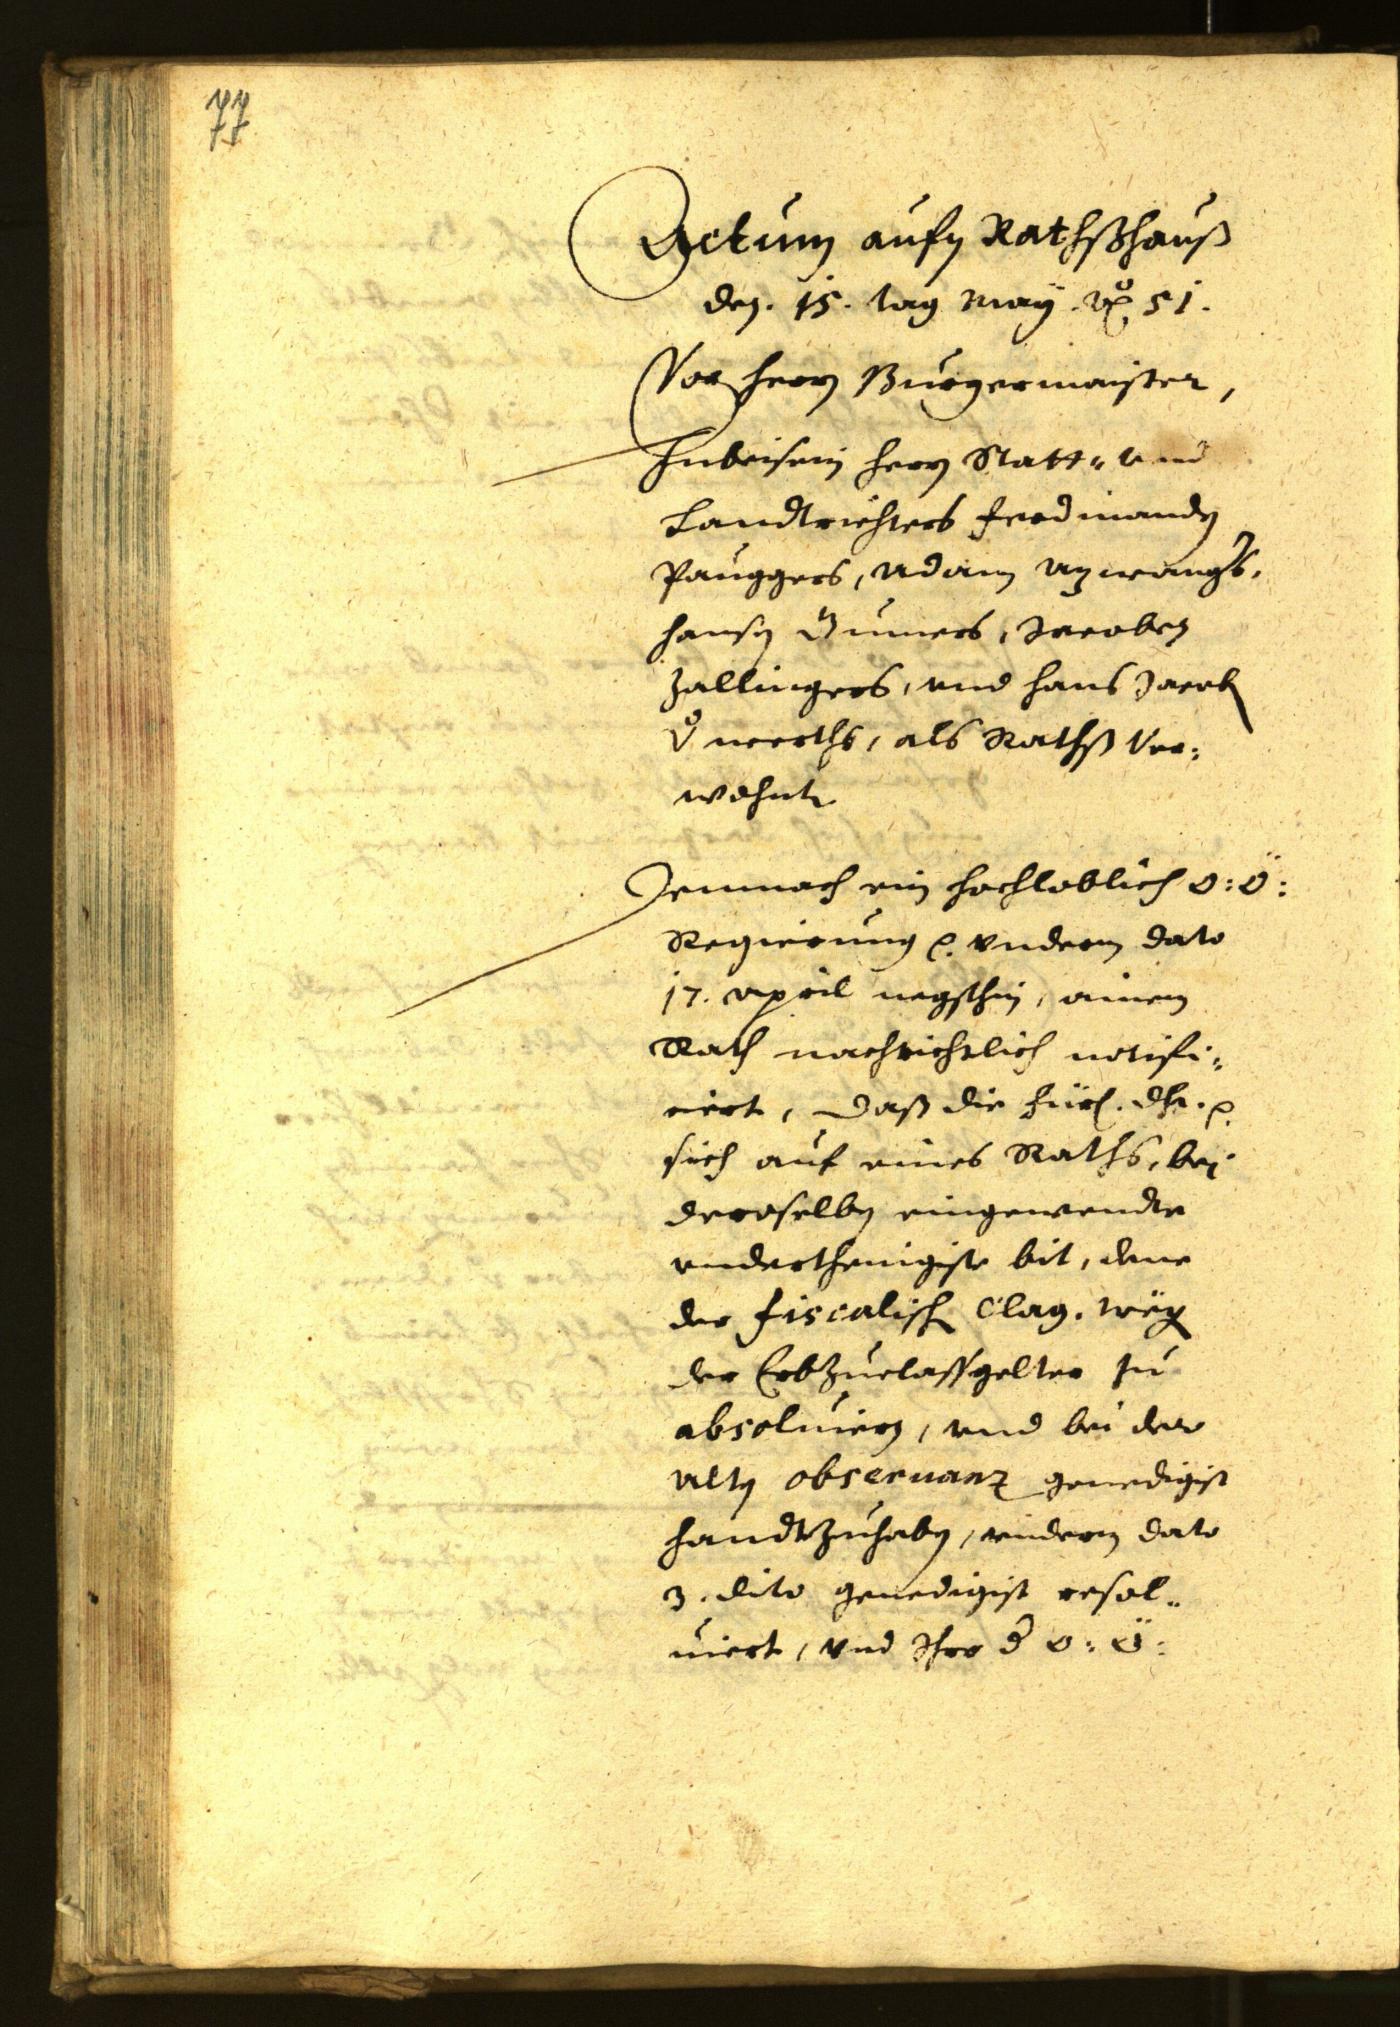 77
Actum aufn Rathßhauß
den. 15. tag May. Aº 51.
Vor herrn Burgermaister,
In beisein herrn Statt- vnd
Landtrichters Ferdinanden
Pauggers, Adam
hansen, Jacoben
Zallingers, vnd hans Jacob
als Raths Ver:
wohnte
Demnach ein hochloblich O: Ö:
Regierung p. vnderm dato
17. April negsthin, ainem
Rath nachrichtlich notifi-
ciert, daß die Fürl. Dht. p.
sich auf eines Raths, bei
deroselben eingewendte
vnderthenigiste bit, dene
der fiscalisch Clag. weg
der Erbzuelassgelter zu
absoluiern, vnd bei der
alten obseruanz genedigist
handtzuhaben, vnderm dato
3. dito genedigist resol-
uiert, vnd Ihro d O: Ö: